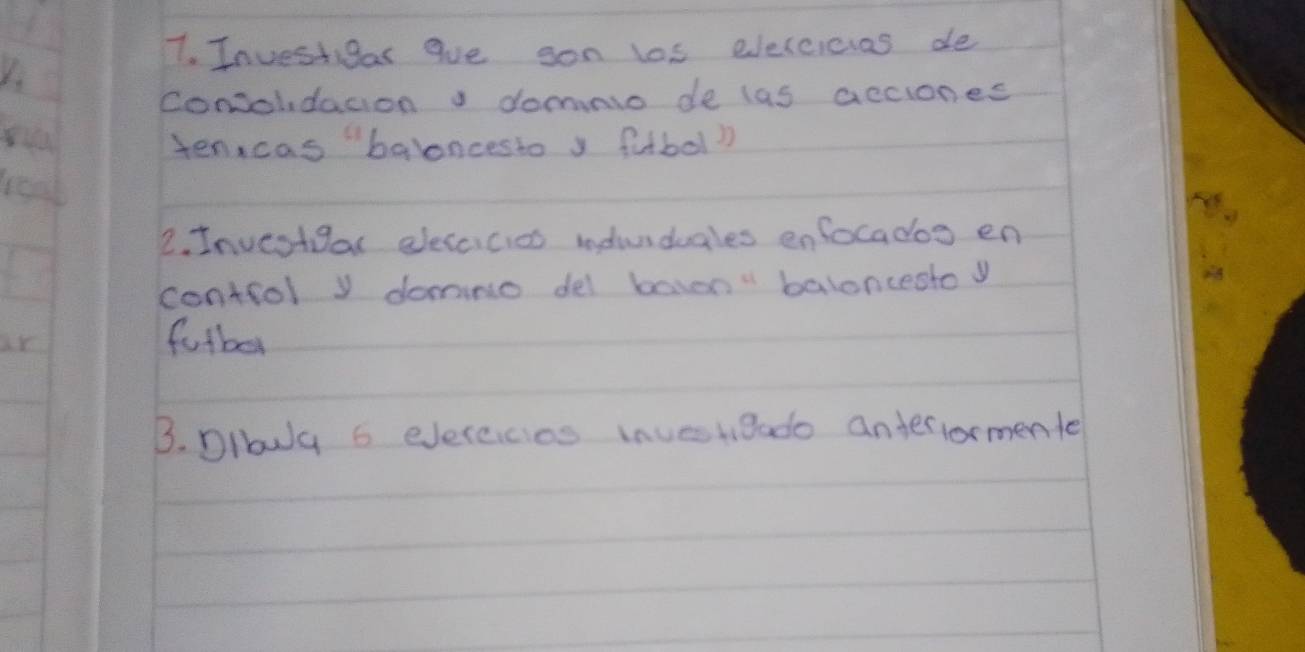 1. Investigar que son los ejercicios de
consolidacion y dominio de las acciones
tenicas "baloncesto y futbol"
2. Investigar ejercicios individuales enfocados en
control y dominio del balon "baloncesto y
futbol
3. Dibuja 6 ejercicios investigado anteriormente